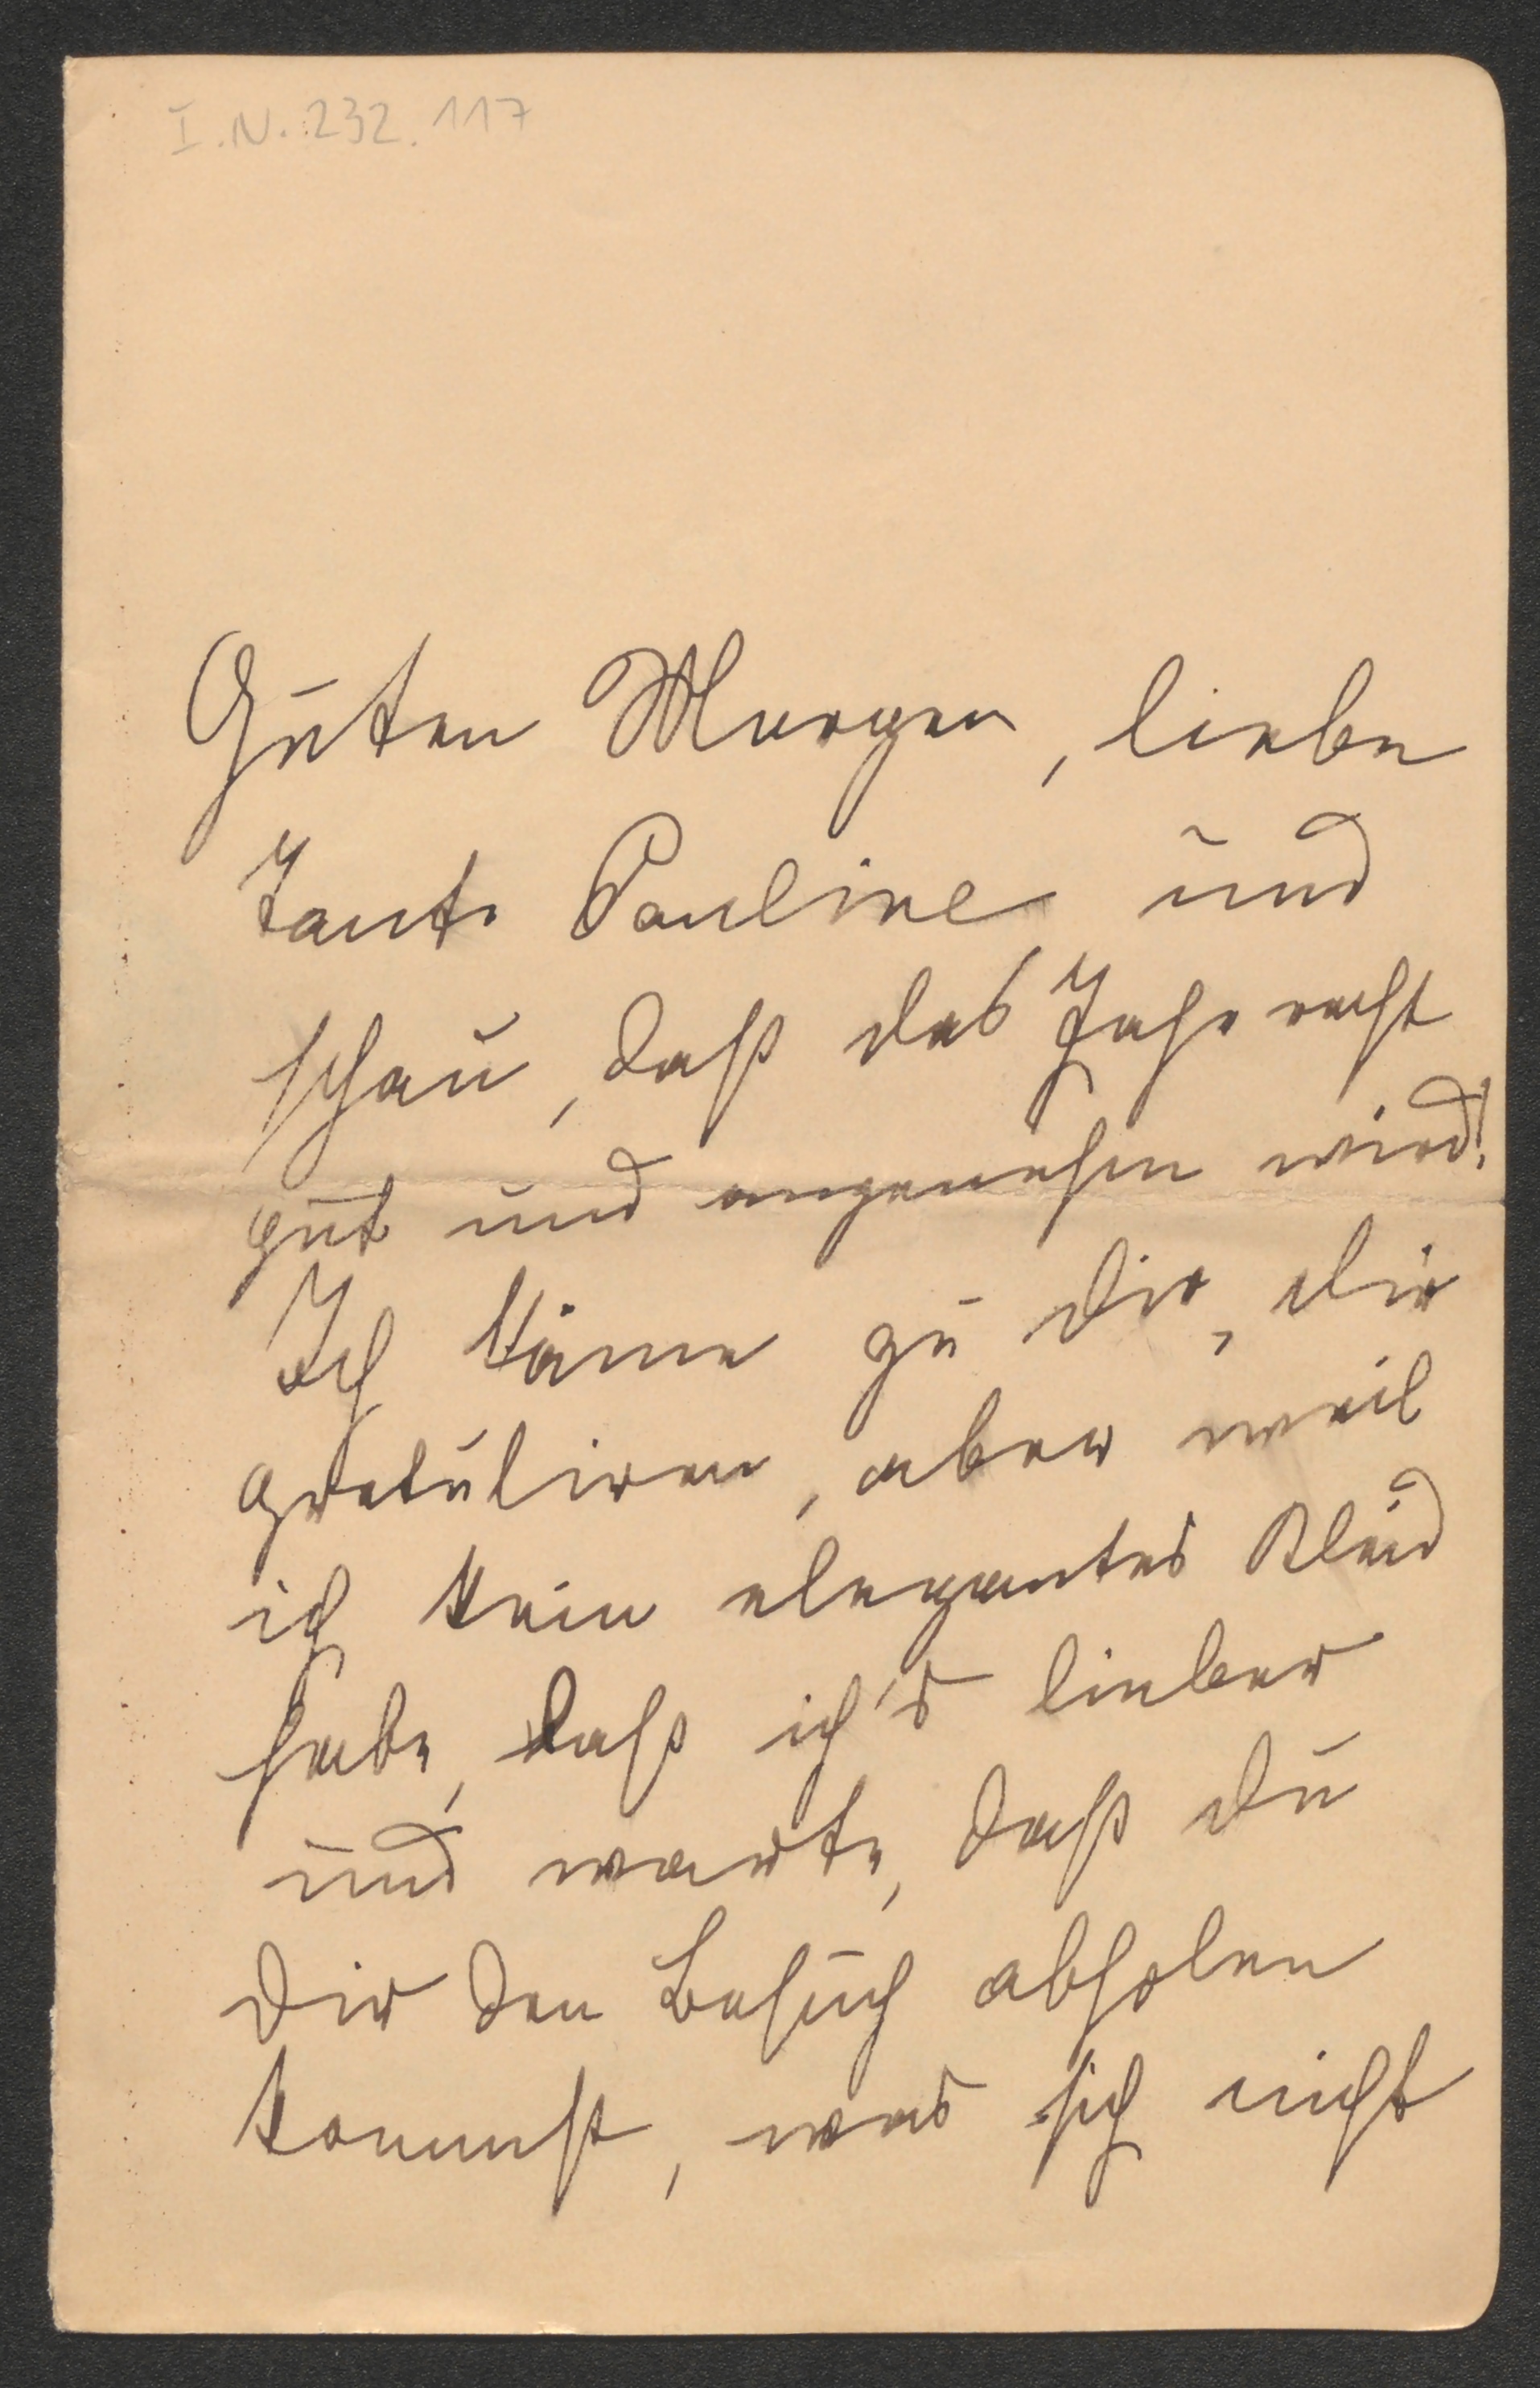 I.N. 232.117
Guten Morgen, liebe
Tante Pauline und
schau, daß das Jahr recht
gut und angenehm wird!
Ich käme zu dir, dir
gratuliren, aber weil
ich kein elegantes Kleid
habe, laß ich's lieber
und warte, daß du
dir den Besuch abholen
kommst, was sich nicht